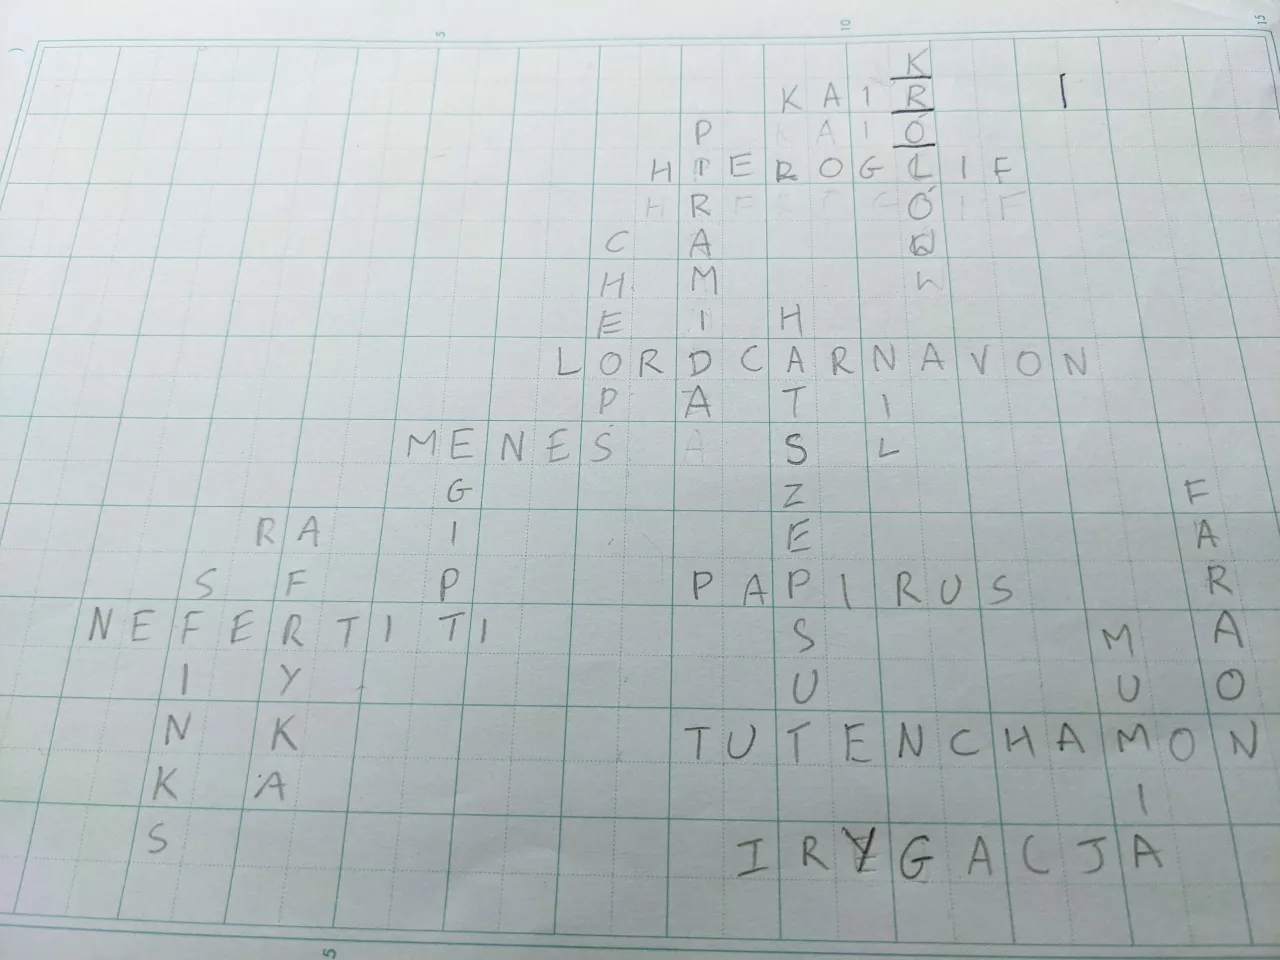 5
10
15
KRÓLÓW
KAIR
PIRAMIDA
HIEROGLIF
CHEOPS
HATSZEPSUT
LORD CARNAVON
NIL
MENES
EGIPT
FARAON
RA
AFRYKA
SFINKS
PAPIRUS
NEFERTITI
MUMIA
TUTENCHAMON
IRYGACJA
5